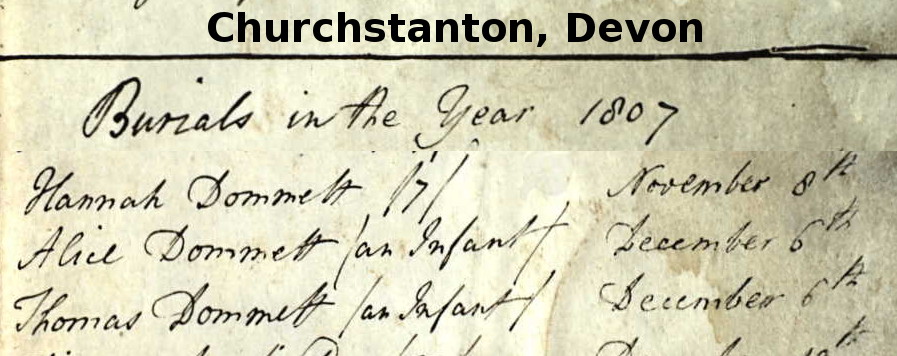 Churchstanton, Devon
Burials in the Year 1807
Hannah Dommett /7/ November 8th
Alice Dommett /an Infant/ December 6th
Thomas Dommett /an Infant/ December 6th